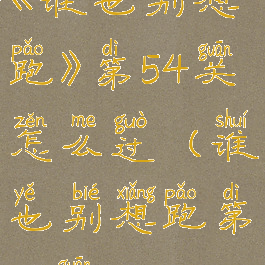 《谁也别想
pǎo dì guān
跑》第54关
zěn me guò shuí
怎么过（谁
yě bié xiǎng pǎo dì
也别想跑第
guān